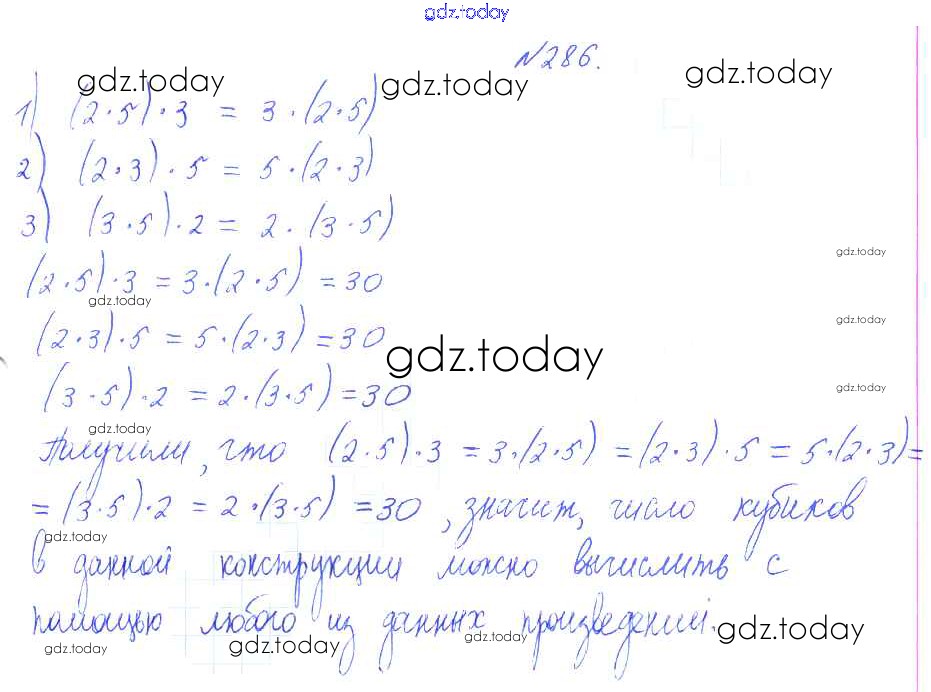 gdz.today
№286.
gdz.today gdz.today gdz.today
1) (2·5)·3 = 3·(2·5)
2) (2·3)·5 = 5·(2·3)
3) (3·5)·2 = 2·(3·5)
gdz.today
(2·5)·3 = 3·(2·5) = 30
gdz.today
gdz.today
(2·3)·5 = 5·(2·3) = 30
gdz.today
gdz.today
(3·5)·2 = 2·(3·5) = 30
gdz.today
Получили, что (2·5)·3 = 3·(2·5) = (2·3)·5 = 5·(2·3) =
= (3·5)·2 = 2·(3·5) = 30, значит, число кубиков
gdz.today
в данной конструкции можно вычислить с
помощью любого из данных произведений.
gdz.today gdz.today gdz.today gdz.today